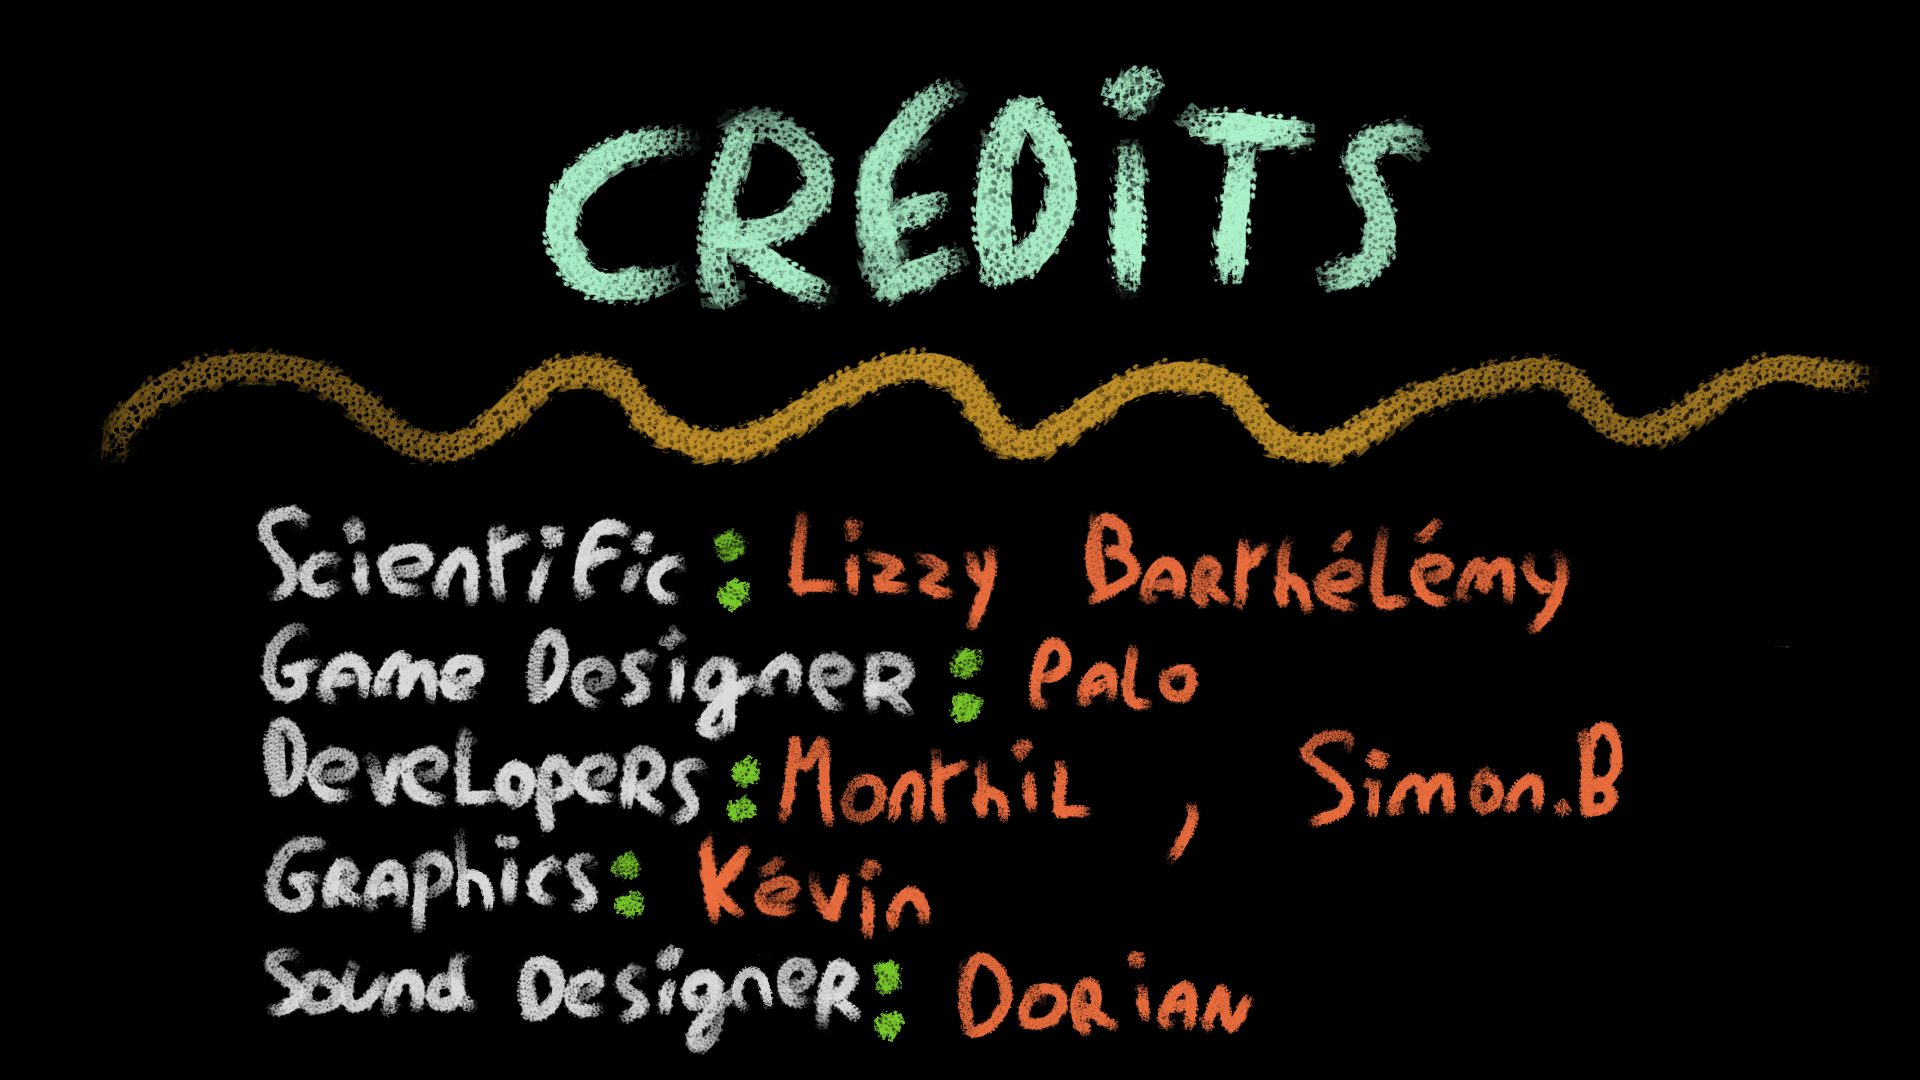 CREDiTS
Scientific : Lizzy Barthélémy
Game Designer : Palo
Developers : Monthil , Simon.B
Graphics : Kévin
Sound Designer : Dorian